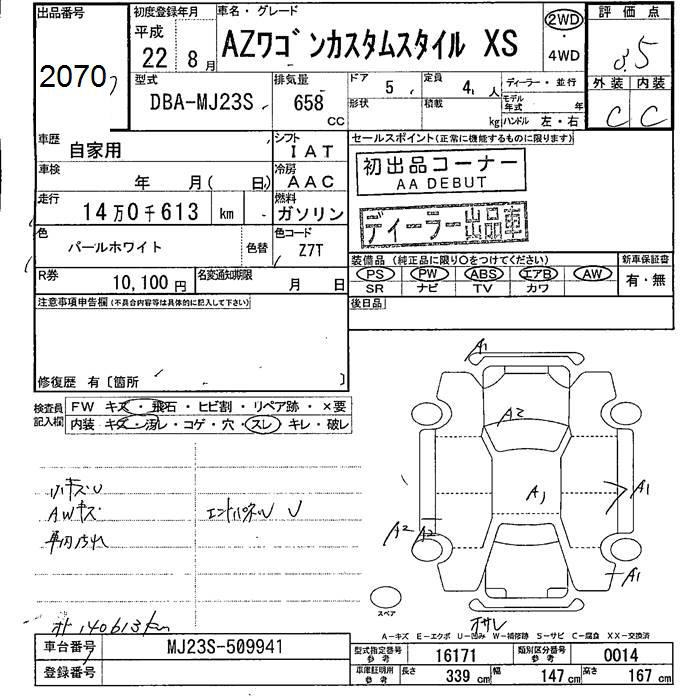 出品番号
2070
初度登録年月
平成
22年8月
車名・グレード
AZワゴンカスタムスタイル XS
2WD
・
4WD
評価点
3.5
外装 内装
C C
型式
DBA-MJ23S
排気量
658
CC
ドア 5
形状
定員 4人
積載 kg
ディーラー・並行
モデル年式 年
ハンドル 左・右
車歴
自家用
シフト
IAT
車検
年 月( 日)
冷房
AAC
走行
14万0千613 km
燃料
ガソリン
色
パールホワイト
色替
色コード
Z7T
R券
10,100円
名変通知期限
月 日
セールスポイント(正常に機能するものに限ります)
初出品コーナー
AA DEBUT
ディーラー出品車
装備品 (純正品に限り○をつけてください)
PS PW ABS エアB AW
SR ナビ TV カワ
新車保証書
有・無
後日品
注意事項申告欄(不具合内容等は具体的に記入して下さい)
修復歴 有〔箇所 〕
検査員
記入欄
FW キズ・飛石・ヒビ割・リペア跡・×要
内装 キズ・汚レ・コゲ・穴・スレ・キレ・破レ
小キズU
AWキズ
車内汚れ
エンドパネルU
オト140613km
A1
A2
A1
A1
A2
A2
A1
スペア
オサレ
A-キズ E-エクボ U-凹み W-補修跡 S-サビ C-腐食 XX-交換済
車台番号
MJ23S-509941
登録番号
型式指定番号
参考
16171
類別区分番号
参考
0014
車庫証明用
参考
長さ 339 cm 幅 147 cm 高さ 167 cm